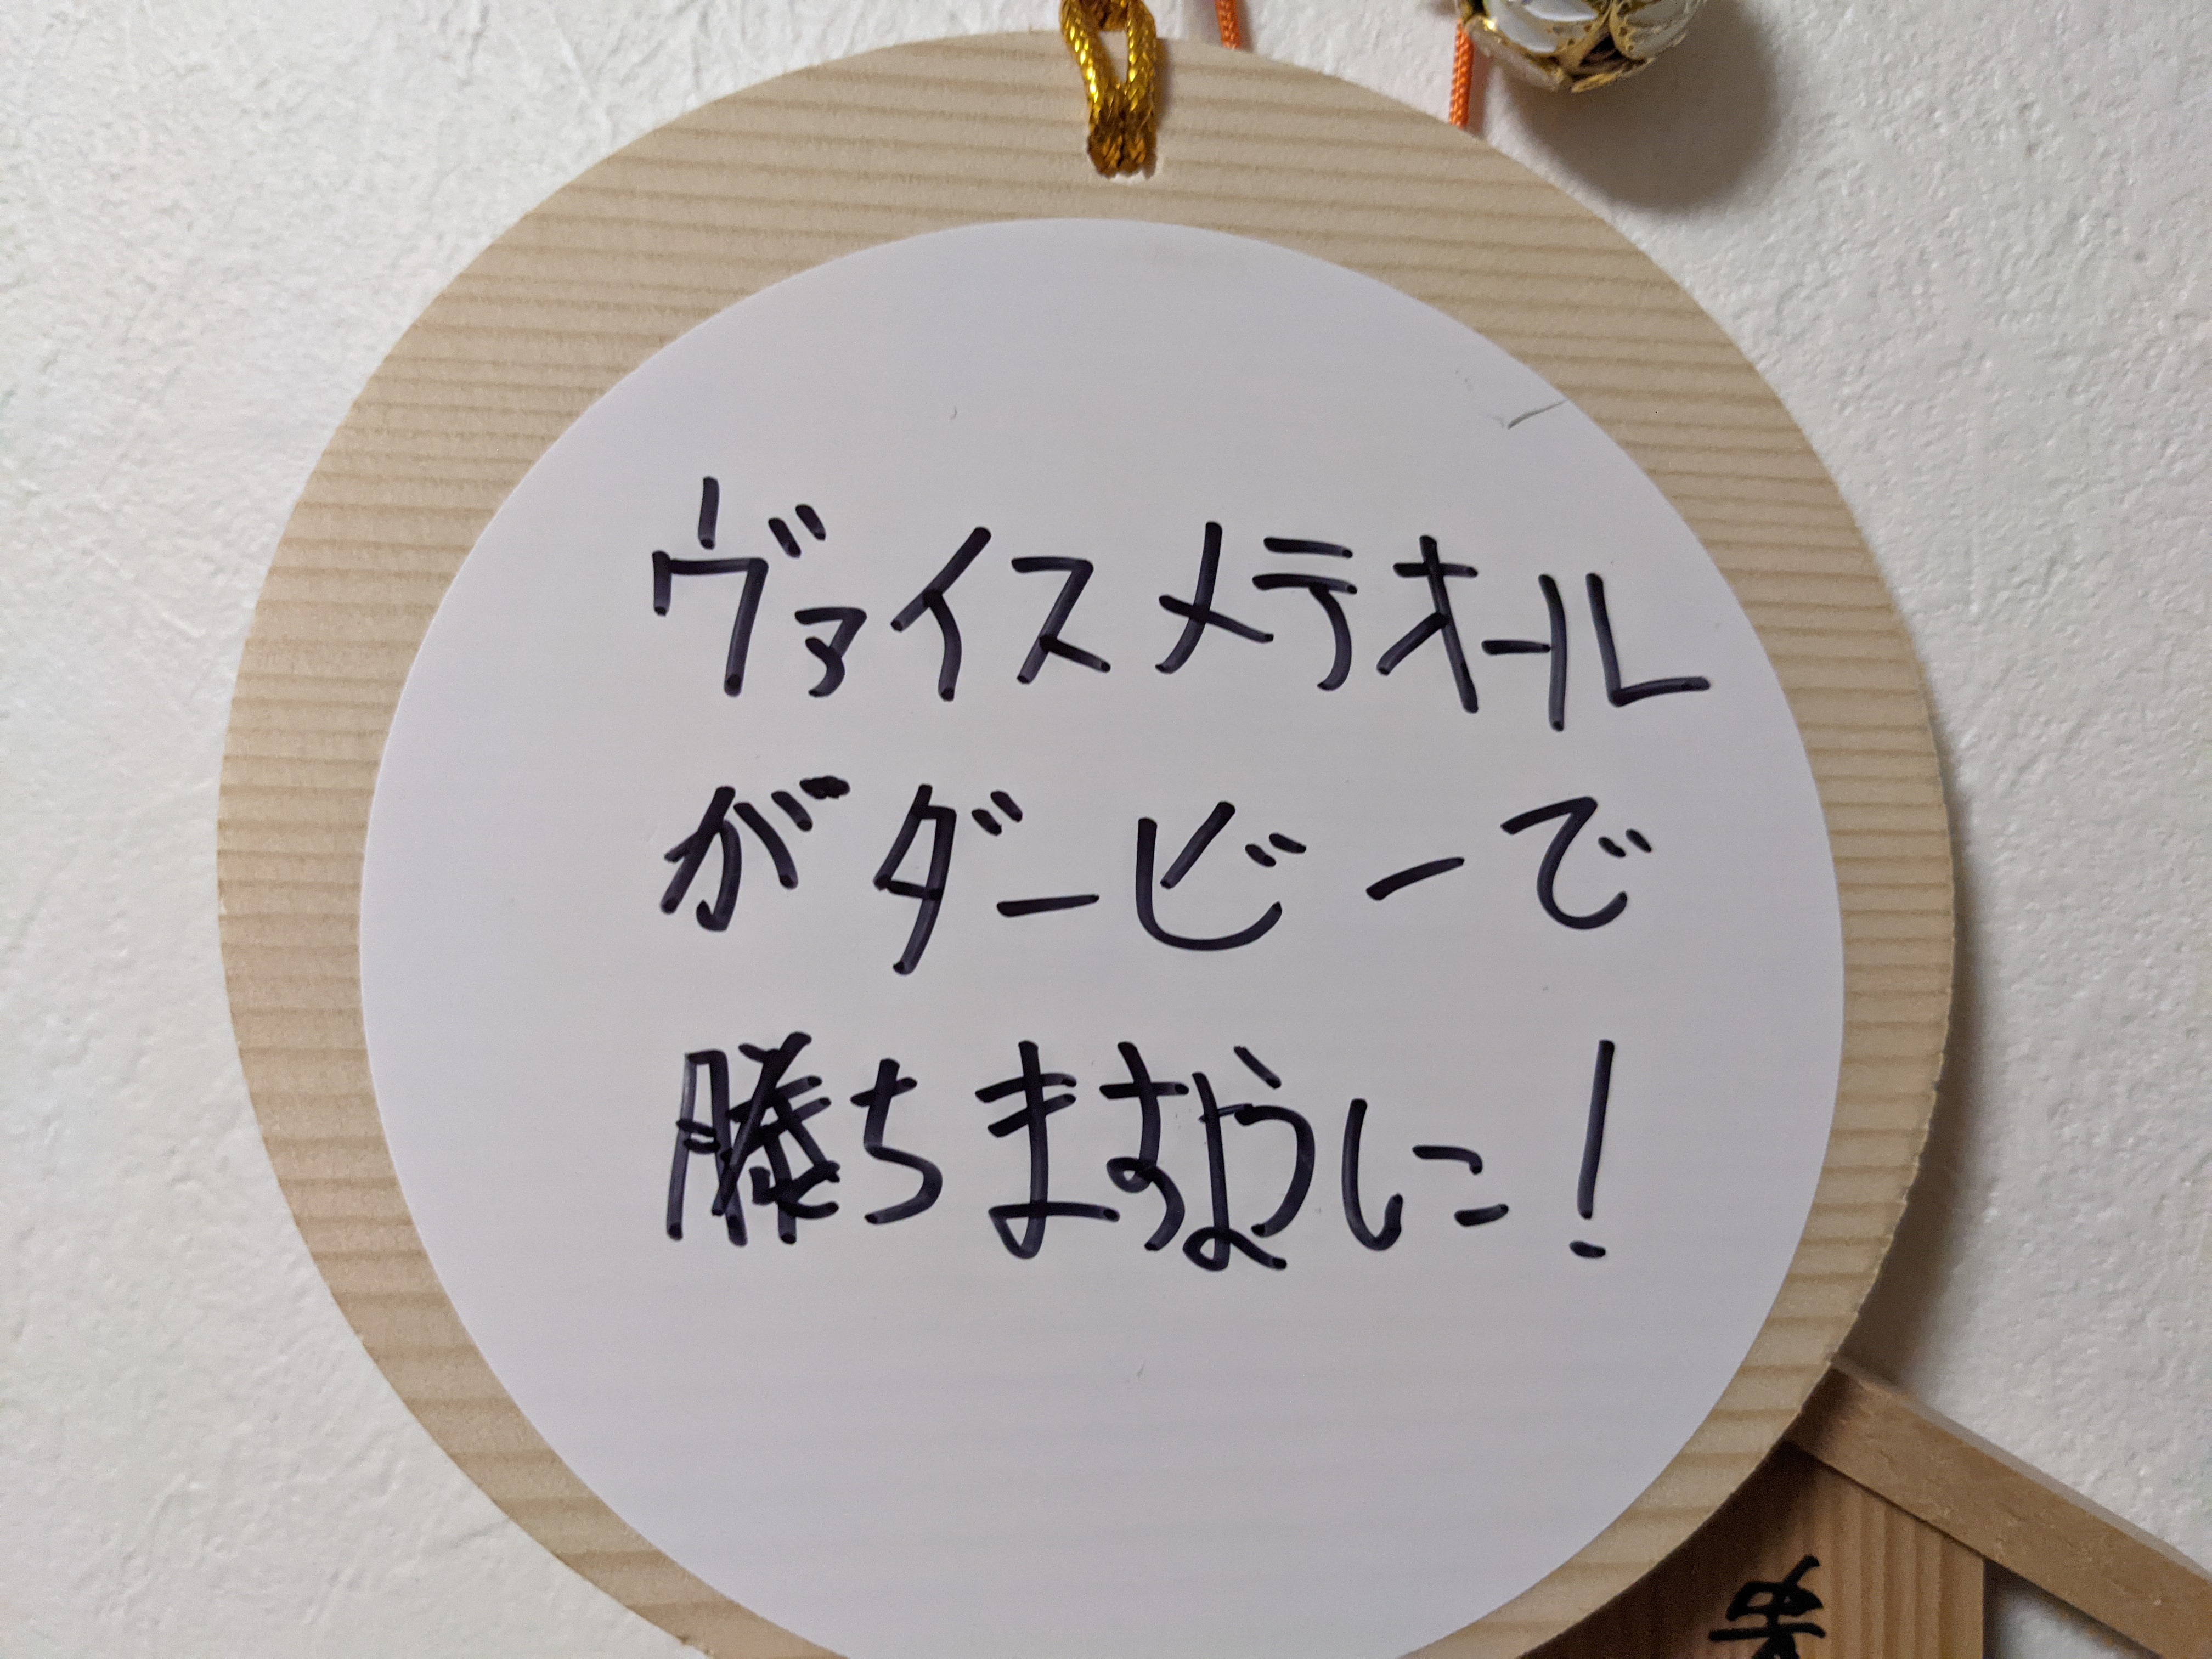 ヴァイスメテオール
がダービーで
勝ちますように!